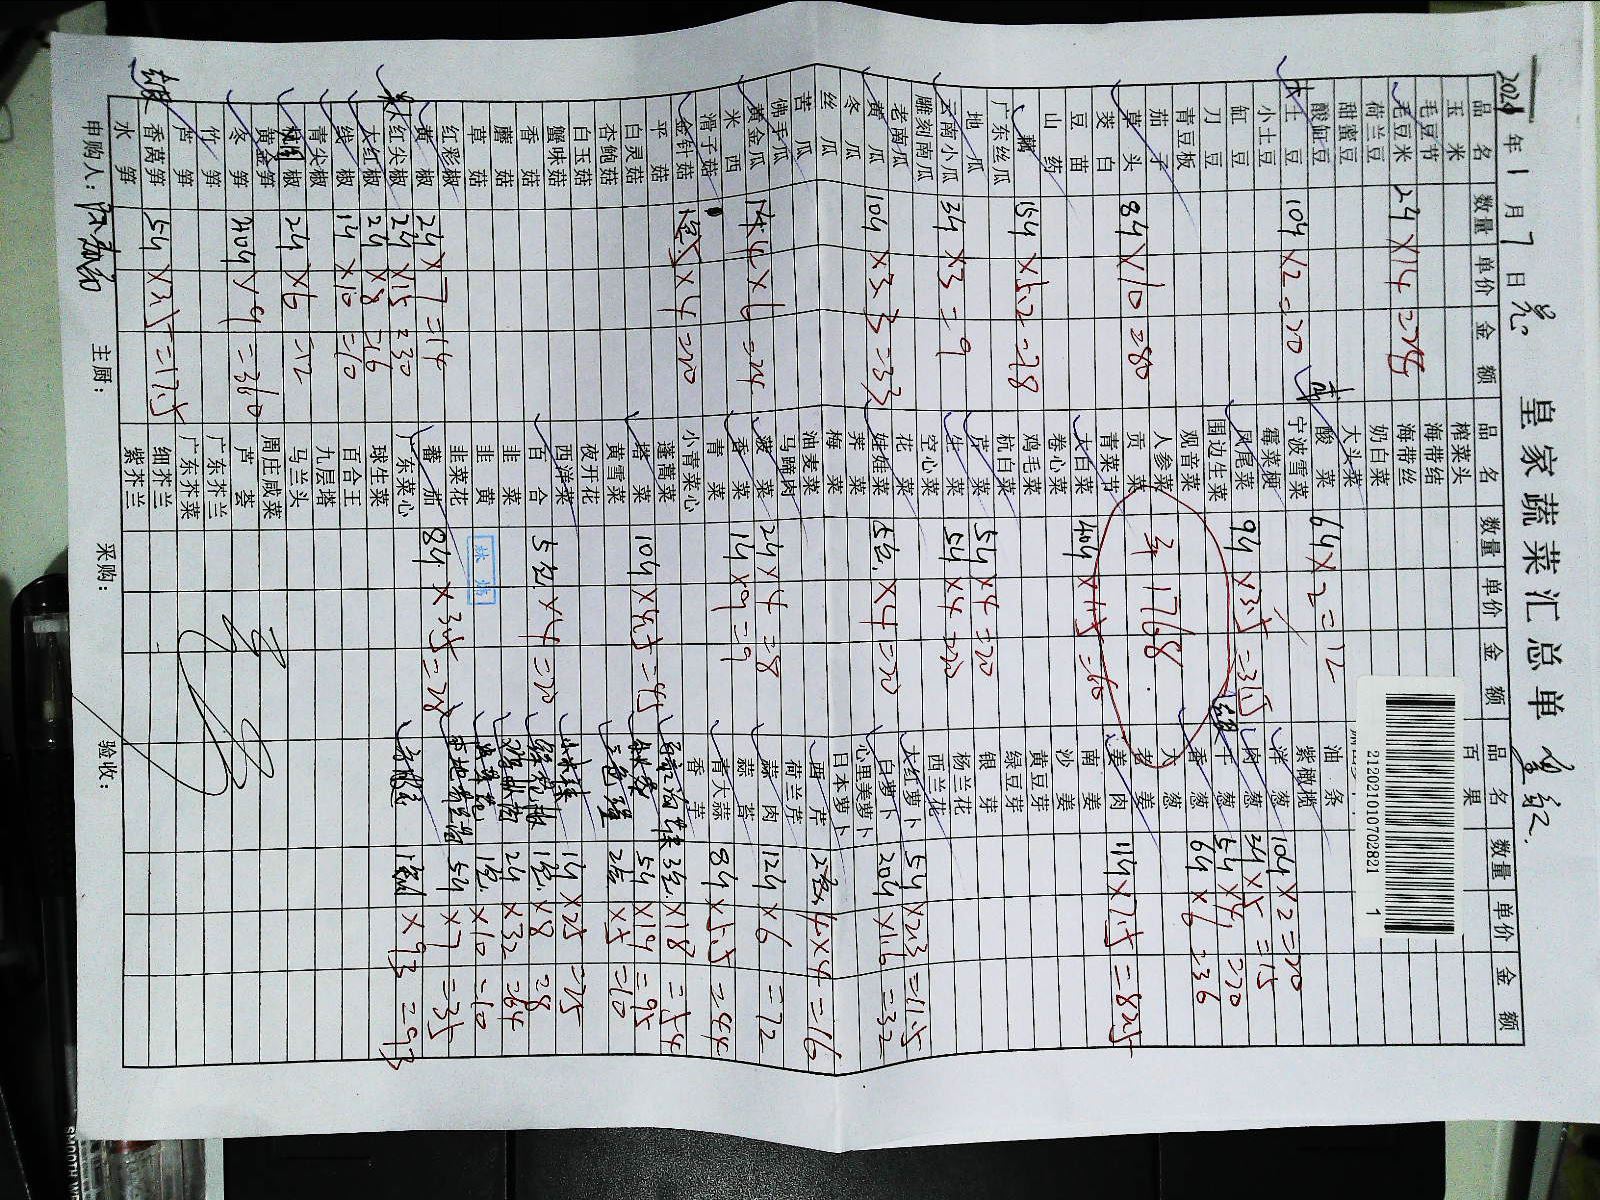 皇家蔬菜汇总单
年 1 月 7 日
品 名 数量 单价 金 额 品 名 数量 单价 金 额 品 名 数量 单价 金 额
玉 米 榨菜头 百 果
毛豆节 海带结
毛豆米 2斤 ×14 =28 海带丝
荷兰豆 奶白菜
甜蜜豆 大头菜 油 条
酸缸豆 酸 菜 6斤 ×2 =12 紫橄榄
土 豆 10斤 ×2 =20 宁波雪菜 洋 葱 10斤 ×2 =20
小土豆 霉菜梗 肉 葱 3斤 ×5 =15
缸 豆 凤尾菜 9斤 ×3.5 =31.5 干 葱 5斤 ×4 =20
刀 豆 围边生菜 香 葱 6斤 ×6 =36
青豆板 观音菜 大 葱
茄 子 人参菜 老 姜
草 头 8斤 ×10 =80 贡 菜 1768 姜 肉 11斤 ×7.5 =82.5
茭 白 青菜节 南 姜
豆 苗 大白菜 40斤 ×1.5 =60 沙 姜
山 药 卷心菜 黄豆芽
藕 15斤 ×5.2 =78 鸡毛菜 绿豆芽
广东丝瓜 杭白菜 银 芽
地 瓜 芹 菜 5斤 ×4 =20 杨兰花
云南小瓜 3斤 ×3 =9 生 菜 5斤 ×4 =20 西兰花
雕刻南瓜 空心菜 大红萝卜 5斤 ×2.3 =11.5
老南瓜 花 菜 白萝卜 20斤 ×1.6 =32
黄 瓜 10斤 ×3.3 =33 娃娃菜 5包 ×4 =20 心里美萝卜
冬 瓜 荠 菜 日本萝卜
丝 瓜 梅 菜 西 芹 4 ×4 =16
苦 瓜 油麦菜 荷兰芹
佛手瓜 马蹄肉 蒜 肉 12斤 ×6 =72
黄金瓜 4 ×6 =24 菠 菜 2斤 ×4 =8 蒜 苔
米 西 香 菜 1斤 ×9 =9 青大蒜 8斤 ×5.5 =44
滑子菇 青 菜 香 芹
金针菇 ×4 =20 小青菜心 3包 ×18 =54
平 菇 蓬蒿菜 5斤 ×19 =95
白灵菇 塔 菜 10斤 ×4.5 =45 三色堇 2盒 ×5 =10
杏鲍菇 黄雪菜
白玉菇 夜开花 1斤 ×25 =25
蟹味菇 西洋菜 1包 ×8 =8
香 菇 百 合 5包 ×4 =20 2斤 ×32 =64
蘑 菇 韭 菜 1包 ×10 =10
草 菇 韭 黄 5斤 ×7 =35
红彩椒 韭菜花
黄 椒 2斤 ×7 =14 蕃 茄 8斤 ×3.5 =28 ×93 =93
红尖椒 2斤 ×15 =30 广东菜心
大红椒 2斤 ×8 =16 球生菜
线 椒 1斤 ×10 =10 百合王
青尖椒 九层塔
椒 2斤 ×6 =12 马兰头
黄金笋 周庄咸菜
冬 笋 40斤 ×9 =360 芦 荟
竹 笋 广东芥兰
芦 笋 广东芥菜
香莴笋 5斤 ×3.5 =17.5 细芥兰
水 笋 紫芥兰
申购人： 主厨： 采购： 验收：
2120221010702831 1